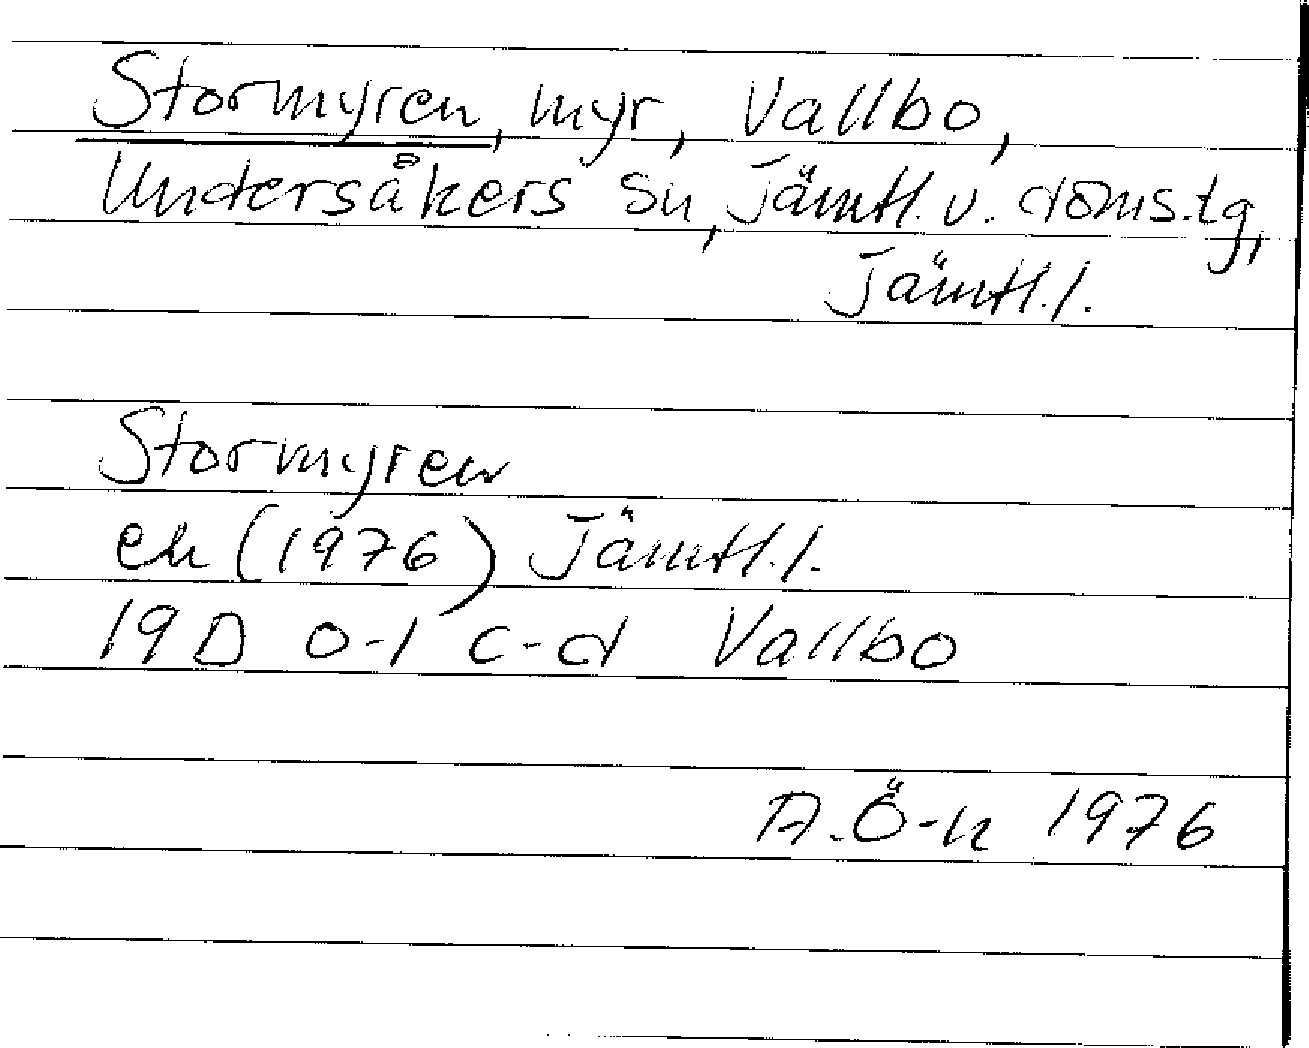 Stormyren, myr, Vallbo,
Undersåkers sn, Jämtl. v. doms.tg,
Jämtl. l.
Stormyren
ek (1976) Jämtl. l.
19 D 0-1 c-d Vallbo
A. Ö-n 1976